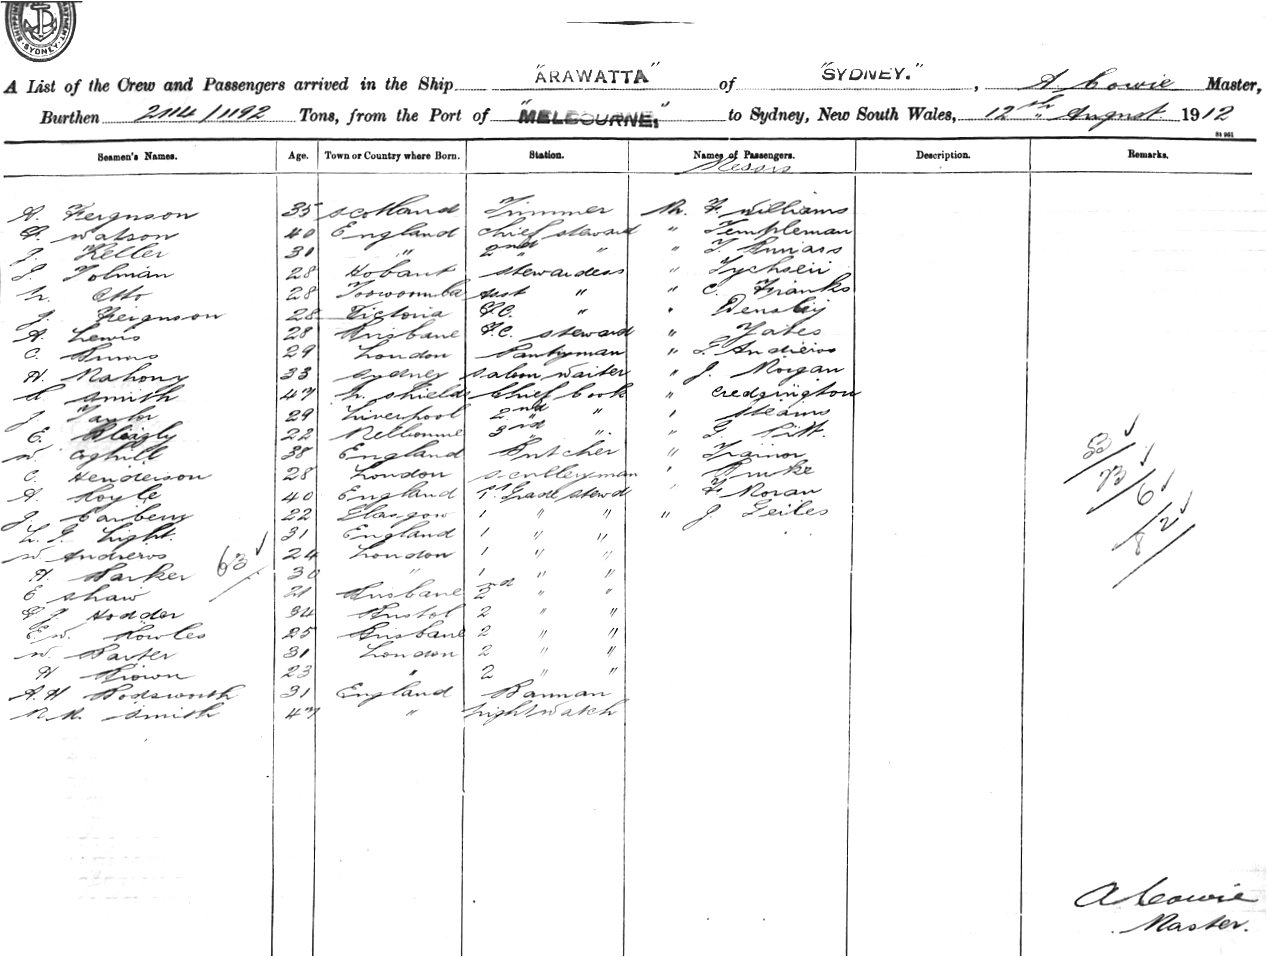 SYDNEY
A List of the Crew and Passengers arrived in the Ship "ARAWATTA" of "SYDNEY.", A Cowie Master,
Burthen 2114/1192 Tons, from the Port of "MELBOURNE," to Sydney, New South Wales, 12th August 1912
Seamen's Names. Age. Town or Country where Born. Station. Names of Passengers. Description. Remarks.
Messrs
A. Ferguson 35 Scotland Trimmer Mr. F. Williams
Watson 40 England Chief Steward " Templeman
J. Keller 31 " 2nd " "
Tolman 28 Hobart Stewardess " Tychsen
Otto 28 Toowoomba Asst " " C. Franks
J. Ferguson 28 Victoria F.C. " "
A. Lewis 28 Brisbane F.C. Steward " Yates
C. Burns 29 London Pantryman " Andrews
H. Mahony 33 Sydney Saloon Waiter " J. Morgan
Smith 47 N. Shields Chief Cook " Credgington
J. Taylor 29 Liverpool 2nd " " Stearns
E. 22 Melbourne 3rd " " G. Pitt.
W. Coghill 38 England Butcher " Trainor
C. Henderson 28 London Sculleryman " Burke
A. Hoyle 40 England 1st Grade Stewd " F. Moran
J. Carberry 22 Glasgow 1 " " " J. Geiles
L. J. Light. 31 England 1 " "
W. Andrews 24 London 1 " "
H. Barker 30 " 1 " "
E Shaw 21 Brisbane 2nd " "
G J Hodder 34 Bristol 2 " "
E W. Howles 25 Brisbane 2 " "
W. Barter 31 London 2 " "
H Brown 23 " 2 " "
A. H Bodsworth 31 England Barman
Smith 47 " Nightwatch
63
73
6
2
8
A Cowie
Master.